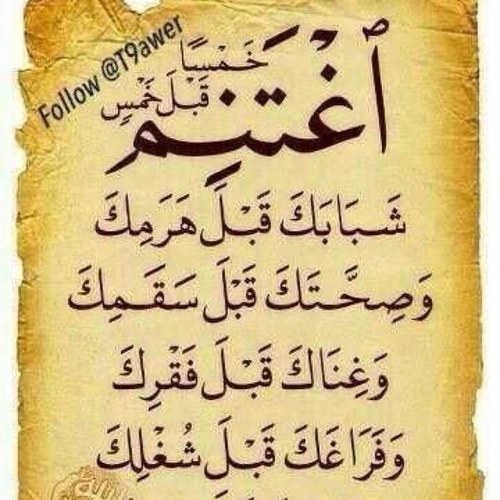 Follow @T9awer
ٱغْتَنِمْ خَمْسًا قَبْلَ خَمْسٍ
شَبَابَكَ قَبْلَ هَرَمِكَ
وَصِحَّتَكَ قَبْلَ سَقَمِكَ
وَغِنَاكَ قَبْلَ فَقْرِكَ
وَفَرَاغَكَ قَبْلَ شُغْلِكَ